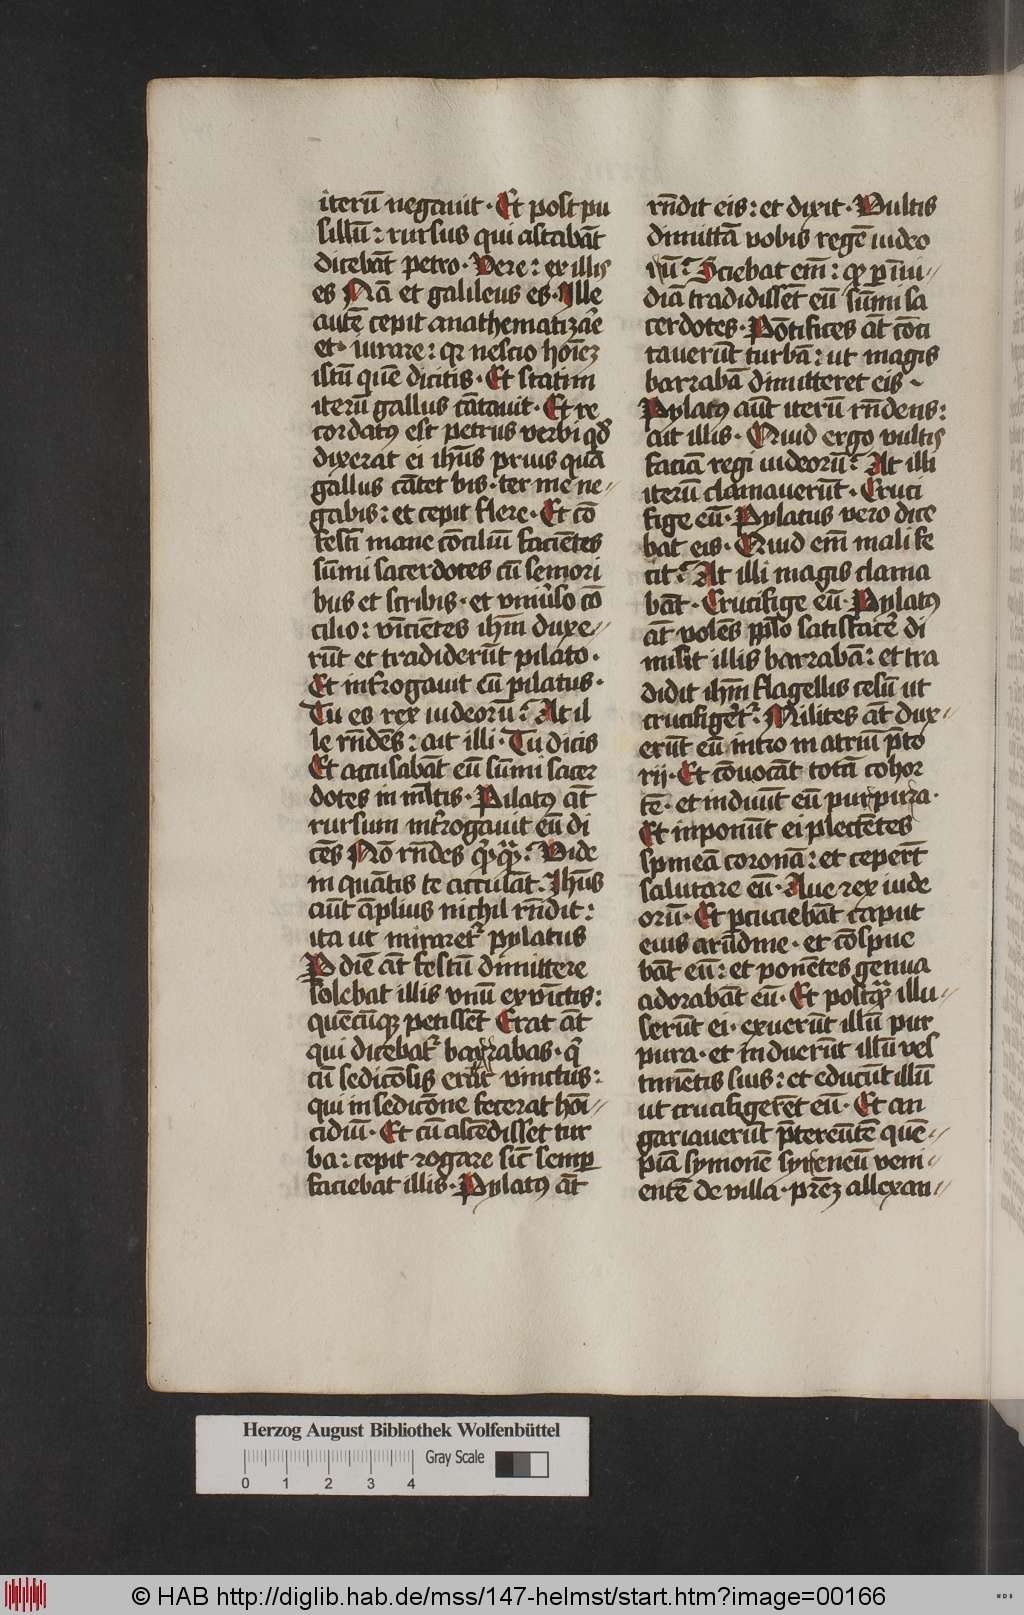 iterū negauit · Et post pu
sillū : rursus qui astabāt
dicebāt petro · Vere : ex illis
es Nā et galileus es · Ille
autē cepit anathematizāe
et · iurare : qr nescio hoīez
istū quē dicitis · Et statim
iterū gallus cātauit · Et re
cordatꝰ est petrus verbi qd̄
dixerat ei ihūs prius quā
gallus cātet bis · ter me ne//
gabis : et cepit flere · Et cō
festī mane cōciliū faciētes
sūmi sacerdotes cū seniori
bus et scribis · et vniūso cō
cilio : vīcientes ihm̄ duxe//
rūt et tradiderūt pilato ·
Et int̄rogauit eū pilatus ·
Tu es rex iudeorū : At il
le rn̄dēs : ait illi · Tu dicis
Et accusabāt eū sūmi sacer
dotes in ml̄tis · Pilatꝰ āt
rursum int̄rogauit eū di
cēs Nō rn̄des Vide
in quātis te accusāt · Ihūs
aūt āplius nichil rn̄dit :
ita ut miraret᷑ pylatus
P diē āt festū dimittere
solebat illis vnū ex vīctis :
quēcūqꝫ petissēt Erat āt
qui dicebat᷑ barrabas · q̄
cū sedicōsis erat vinctus :
qui in sedicōne fecerat hōi//
cidiū · Et cū ascēdisset tur
ba : cepit rogare sic̄ semꝑ
faciebat illis · Pylatꝰ āt
rn̄dit eis : et dixit · Vultis
dimittā vobis regē iudeo
rū : Sciebat em̄ : qꝫ ꝑ īui//
diā tradidissēt eū sūmi sa
cerdotes · Pōtifices āt cōci
tauerūt turbā : ut magis
barrabā dimitteret eis ~
Pylatꝰ aūt iterū rn̄dens :
ait illis · Quid ergo vultis
faciā regi iudeorū : At illi
iterū clamauerūt · Cruci
fige eū · Pylatus vero dice
bat eis · Quid em̄ mali fe
cit : At illi magis clama
bāt · Crucifige eū · Pylatꝰ
āt volēs pp̄lo satisfacē di
misit illis barrabā : et tra
didit ihm̄ flagellis cesū ut
crucifigēt᷑ · Milites āt dux//
erūt eū intro in atriū p̄to
rij · Et cōuocāt totā cohor
tē · et induūt eū purpura ·
Et inponūt ei plectētes
spineā coronā : et ceperēt
salutare eū · Aue rex iude
orū · Et ꝑcuciebāt caput
eius arūdine · et cōspue
bāt eū : et ponētes genua
adorabāt eū · Et postqꝫ illu//
serūt ei · exuerūt illū pur
pura · et induerūt illū ves
timētis suis : et educūt illū
ut crucifigerēt eū · Et an
gariauerūt p̄tereūtē quē//
piā symonē syreneū veni//
entē de villa · prēꝫ allexan//
Herzog August Bibliothek Wolfenbüttel
Gray Scale
0 1 2 3 4
© HAB http://diglib.hab.de/mss/147-helmst/start.htm?image=00166